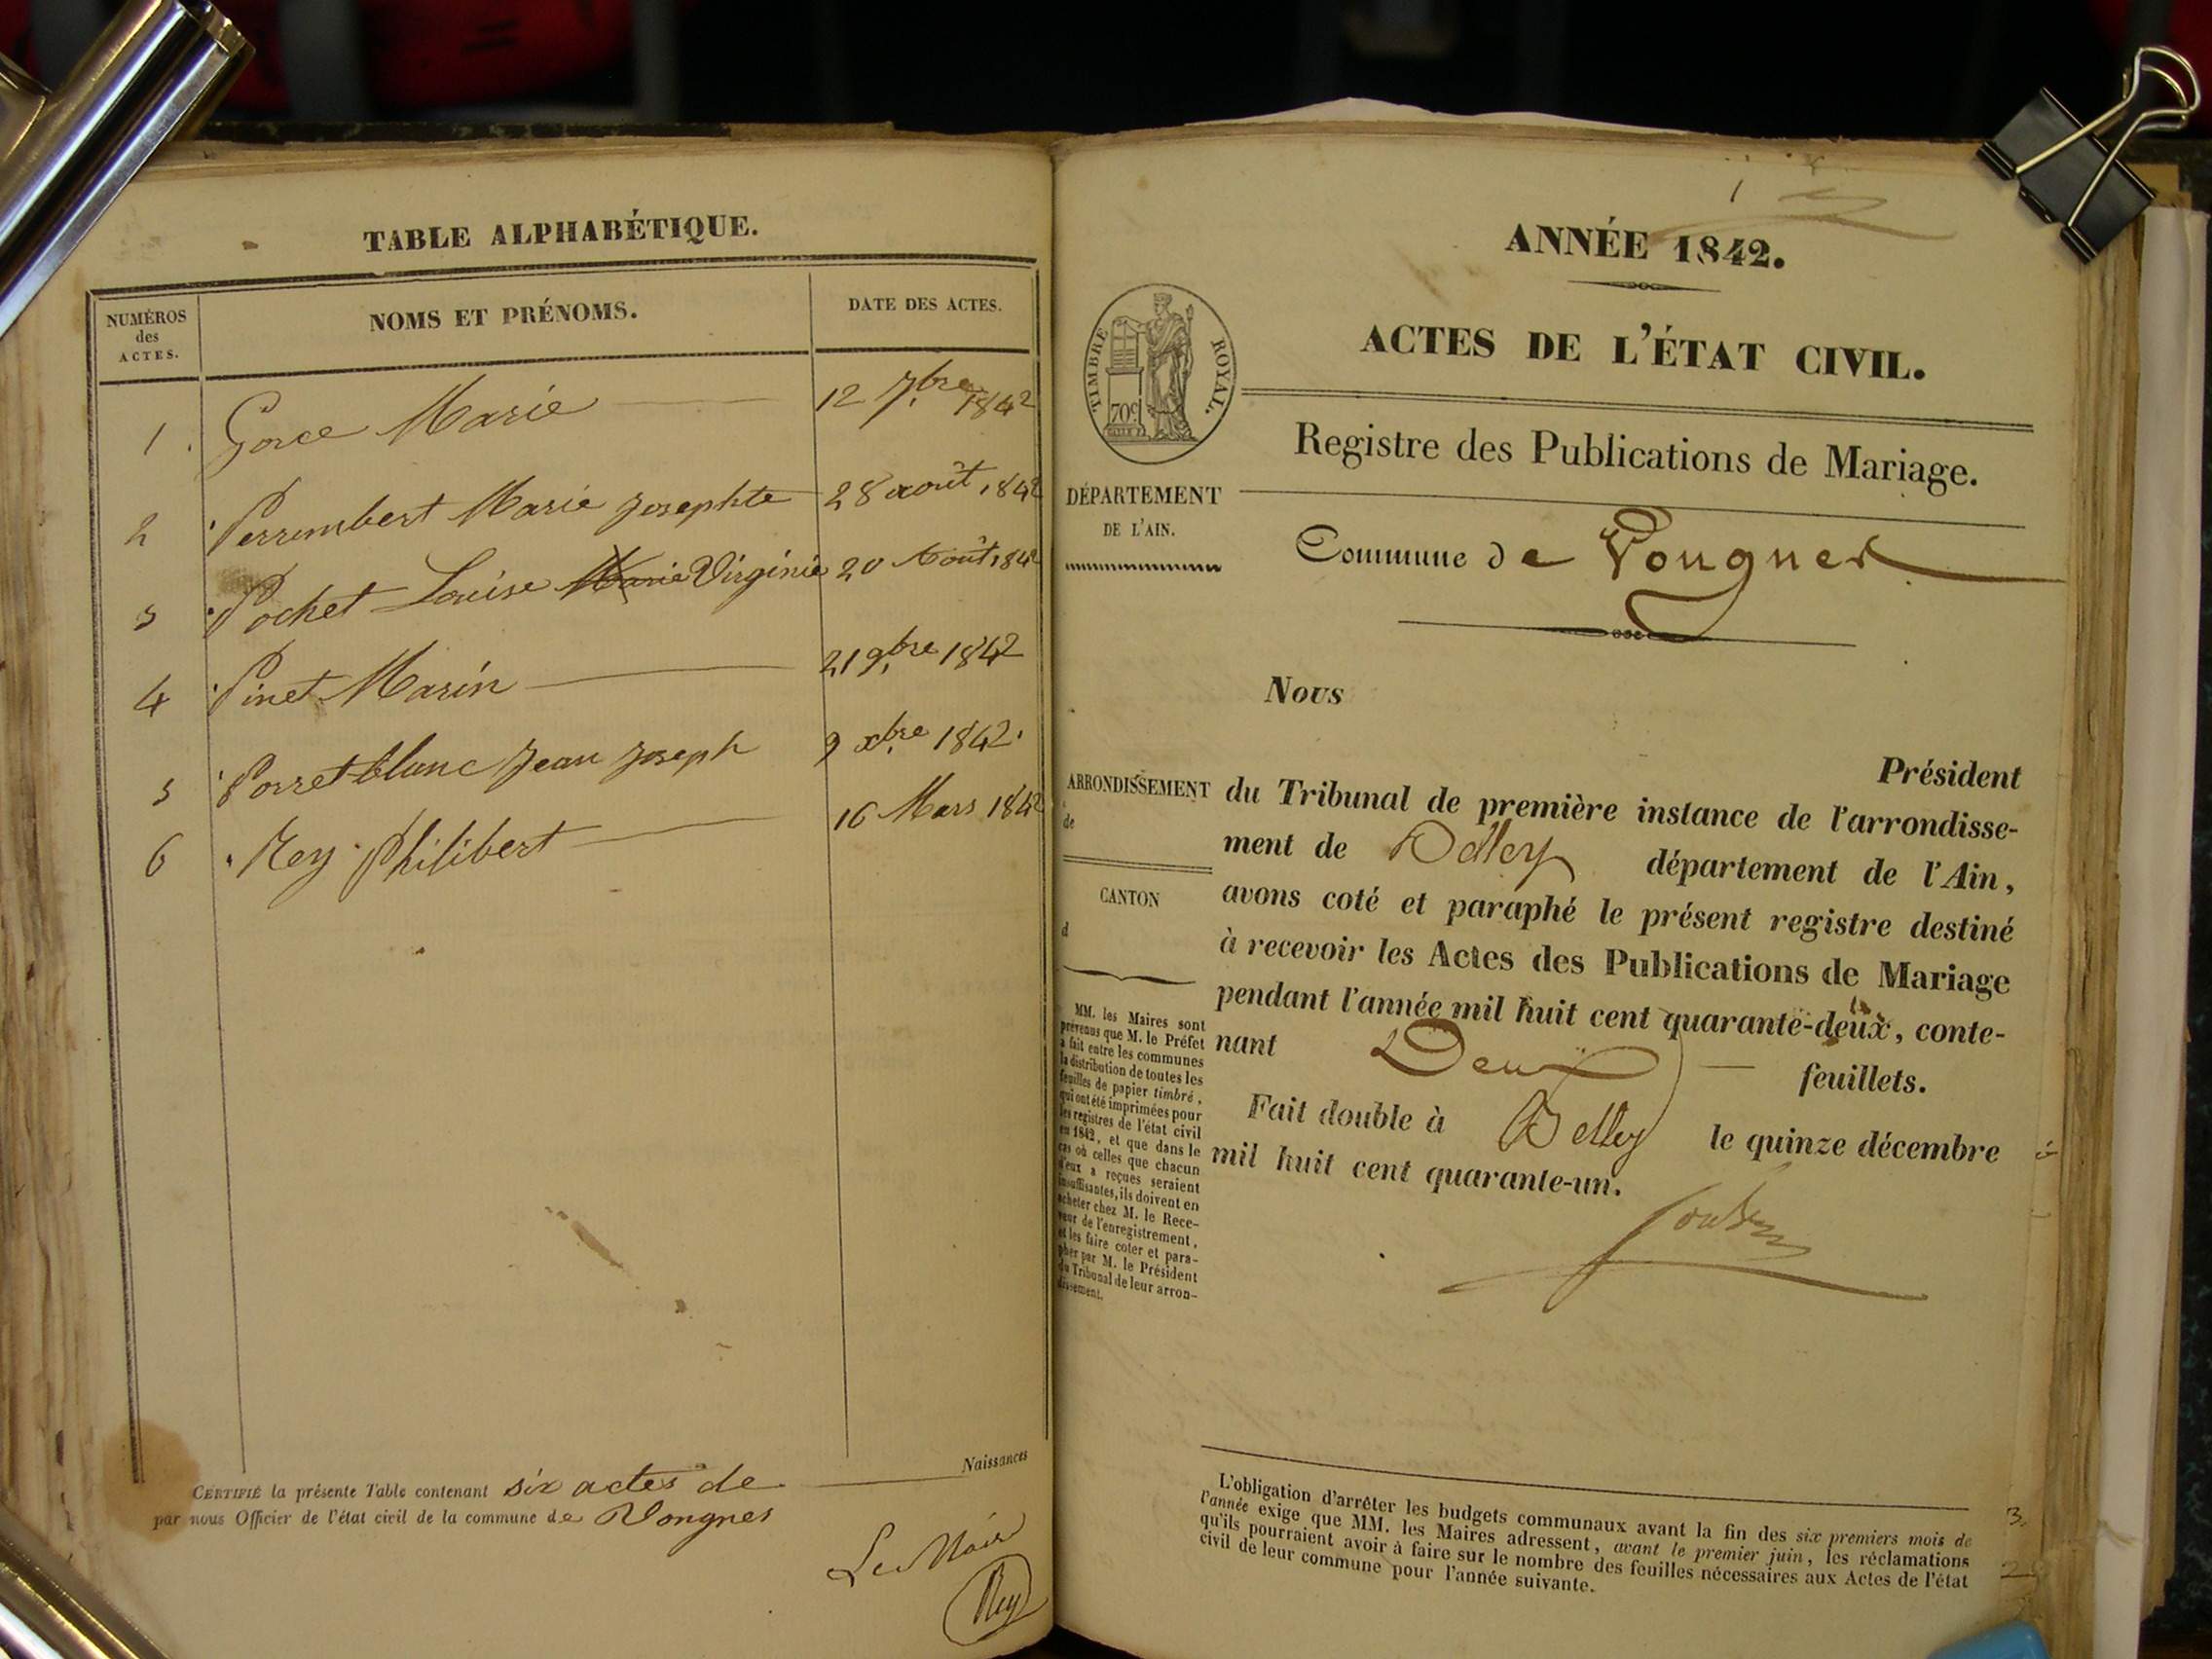 TABLE ALPHABÉTIQUE.
NUMÉROS
des
ACTES.
NOMS ET PRÉNOMS.
DATE DES ACTES.
1. Gorce Marie 12 7.bre 1842
2 Perrimbert Marie Josephte 28 août 1842
3 Pochet Louise Marie Virginie 20 Août 1842
4 Pinet Marin 21 9.bre 1842
5 Porret-blanc Jean Joseph 9 xbre 1842.
6 Rey Philibert 16 Mars 1842
CERTIFIÉ la présente Table contenant six actes de Naissances
par nous Officier de l'état civil de la commune de Vongnes
Le Mair
Rey
ANNÉE 1842.
ACTES DE L'ÉTAT CIVIL.
TIMBRE ROYAL.
70c
Registre des Publications de Mariage.
DÉPARTEMENT
DE L'AIN.
Commune de Vougnes
Nous
Président
ARRONDISSEMENT
de
CANTON
d
du Tribunal de première instance de l'arrondisse-
ment de Belley département de l'Ain,
avons coté et paraphé le présent registre destiné
à recevoir les Actes des Publications de Mariage
pendant l'année mil huit cent quarante-deux, conte-
nant Deux feuillets.
Fait double à Belley le quinze décembre
mil huit cent quarante-un.
MM. les Maires sont
prévenus que M. le Préfet
a fait entre les communes
la distribution de toutes les
feuilles de papier timbré,
qui ont été imprimées pour
les registres de l'état civil
en 1842, et que dans le
cas où celles que chacun
d'eux a reçues seraient
insuffisantes, ils doivent en
acheter chez M. le Rece-
veur de l'enregistrement,
et les faire coter et para-
pher par M. le Président
du Tribunal de leur arron-
dissement.
L'obligation d'arrêter les budgets communaux avant la fin des six premiers mois de
l'année exige que MM. les Maires adressent, avant le premier juin, les réclamations
qu'ils pourraient avoir à faire sur le nombre des feuilles nécessaires aux Actes de l'état
civil de leur commune pour l'année suivante.